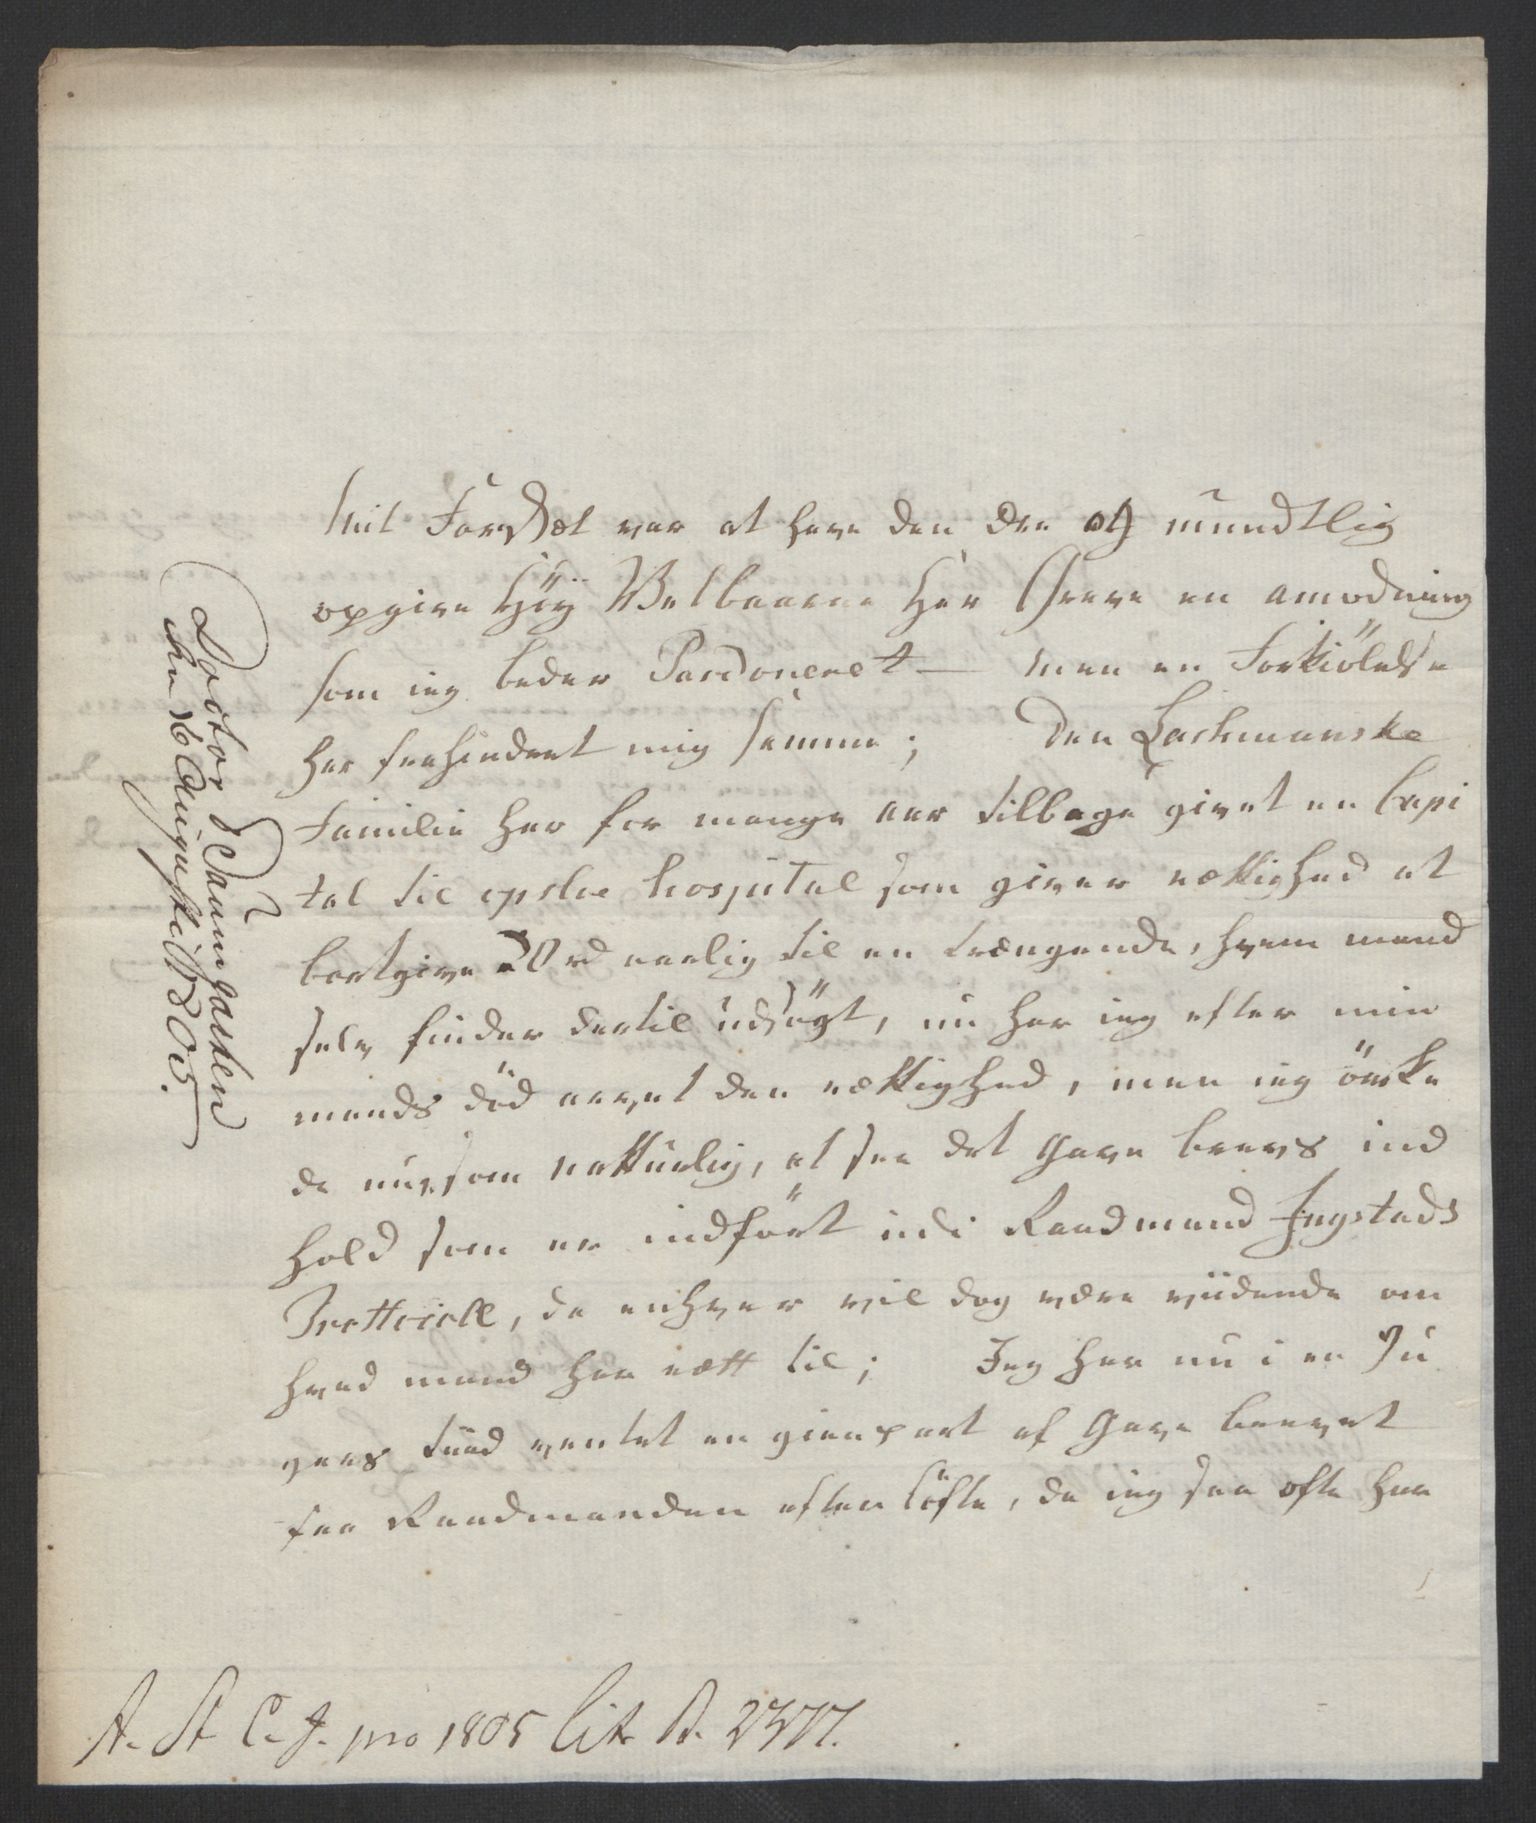 Mit Forsæt var at have den Ære og mundtlig
opgive Høy Velbaarne Her Greve en amodning
som ieg beder Pardoneret — men en Forkiölelse
har forhindret mig samme; Den Lachmanske
Familie har for mange aar tilbage givet en Capi
tal til opsloe hospital som giver rættighed at
bortgive 20 rd aarlig til en trængende, hvem mand
selv finder dertil udsögt, nu har ieg efter min
mands död arvet den rættighed, men ieg önske
de nu, som natturlig, at see det Gave brevs ind
hold som er indfört udi Raadmand Ingstads
Prottocoll, da enhver vil dog være viidende om
hvad mand har rætt til; Jeg har nu i en 7 u
gers tiid ventet en gienpart af Gave brevet
fra Raadmanden efter löfte, da ieg saa ofte har
Doctor Daumgarten
den 16 Augusti 1805.
A. St. C. J. pro 1805 Lit. D. 2377.